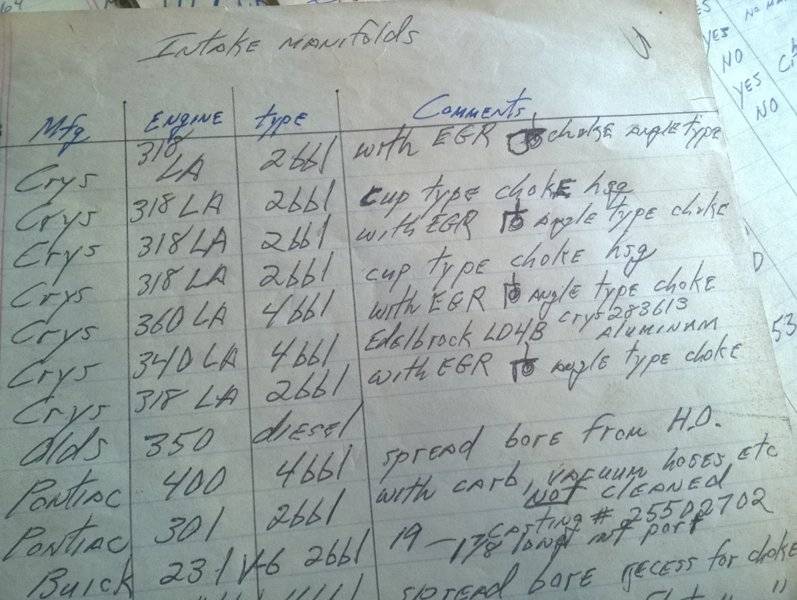 Intake manifolds
Mfg ENGINE type Comments
Crys 318 LA 2bbl with EGR choke angle type
Crys 318 LA 2bbl cup type choke hsg
Crys 318 LA 2bbl with EGR angle type choke
Crys 318 LA 2bbl cup type choke hsg
Crys 360 LA 4bbl with EGR angle type choke
Crys 340 LA 4bbl Edelbrock LD4B crys 283613 ALUMINUM
Crys 318 LA 2bbl with EGR angle type choke
Olds 350 diesel
Pontiac 400 4bbl spread bore from H.O.
Pontiac 301 2bbl with carb, vacuum hoses etc NOT CLEANED
Buick 231 V-6 2bbl 19 — casting # 25502702
1 7/8 long int port
spread bore recess for choke
YES
NO
YES
NO
D
53